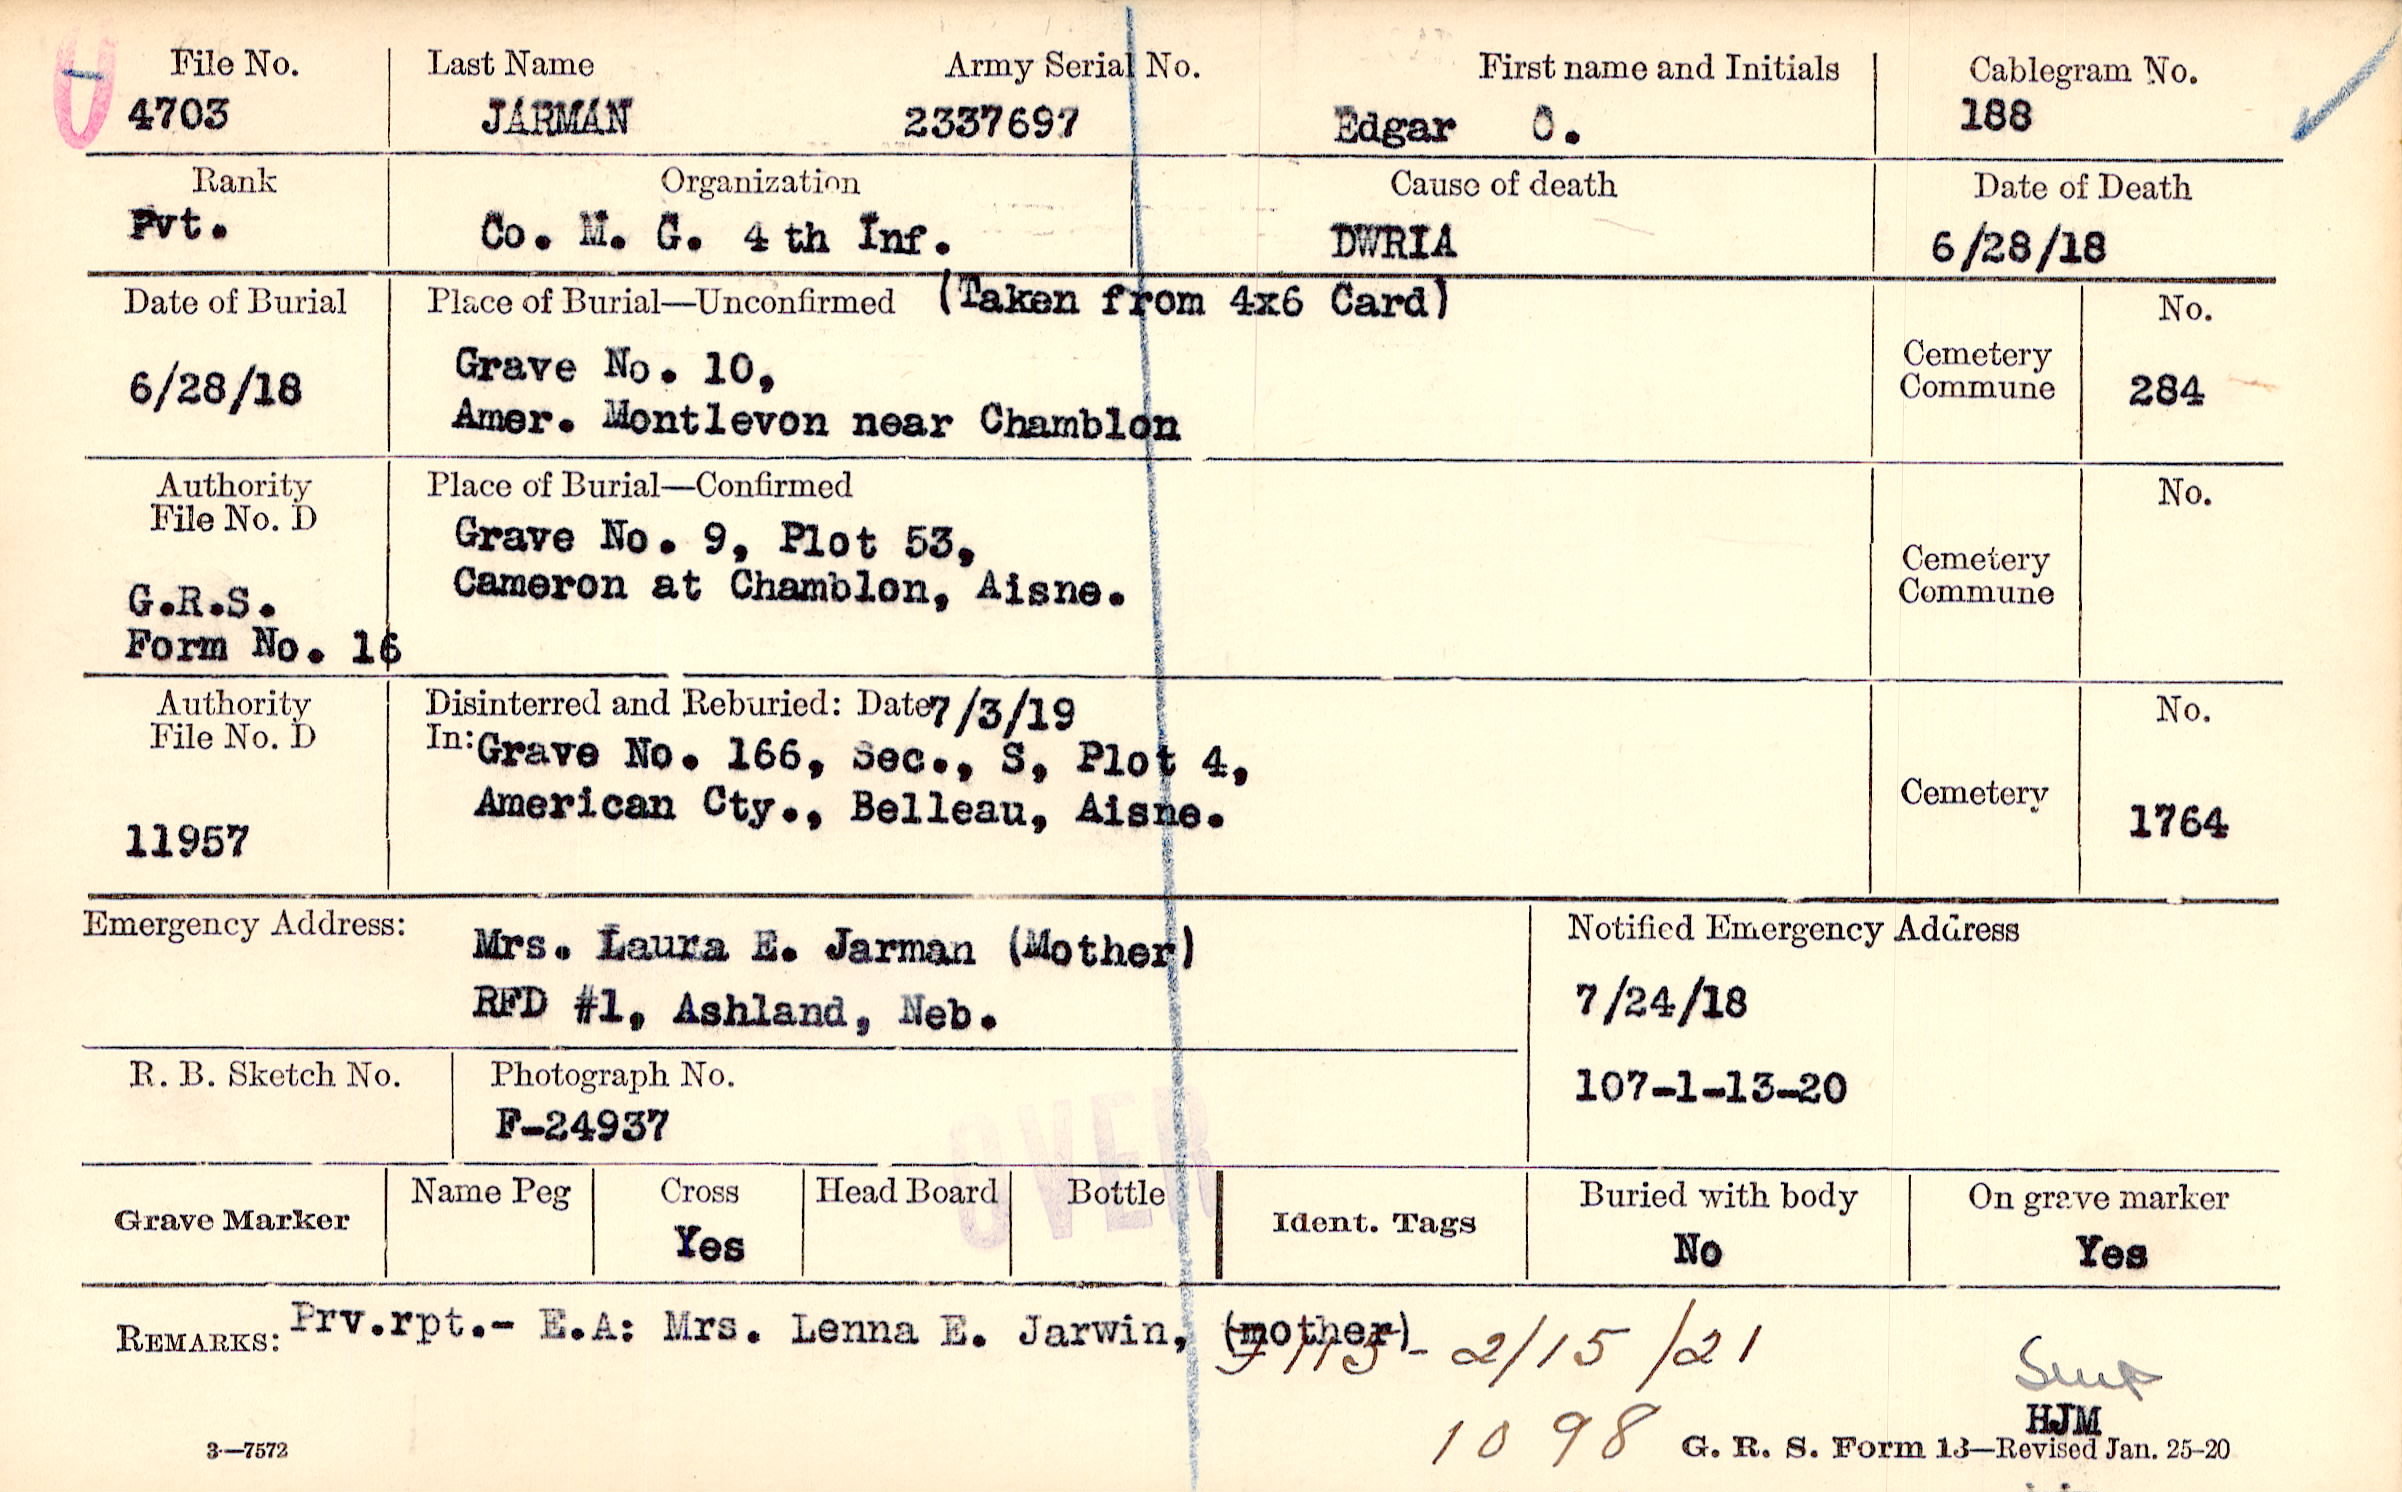 File No. Last Name Army Serial No. First name and Initials Cablegram No.
4703 JARMAN 2337697 Edgar O. 188
Rank Organization Cause of death Date of Death
Pvt. Co. M. G. 4th Inf. DWRIA 6/28/18
Date of Burial Place of Burial—Unconfirmed (Taken from 4x6 Card) No.
6/28/18 Grave No. 10, Cemetery Commune 284
Amer. Montlevon near Chamblon
Authority File No. D Place of Burial—Confirmed No.
Grave No. 9, Plot 53,
Cameron at Chamblon, Aisne. Cemetery Commune
G.R.S.
Form No. 16
Authority File No. D Disinterred and Reburied: Date 7/3/19 No.
In: Grave No. 166, Sec., S, Plot 4,
American Cty., Belleau, Aisne. Cemetery 1764
11957
Emergency Address: Mrs. Laura E. Jarman (Mother) Notified Emergency Address
RFD #1, Ashland, Neb. 7/24/18
R. B. Sketch No. Photograph No. 107-1-13-20
F-24937
OVER
Grave Marker Name Peg Cross Head Board Bottle Ident. Tags Buried with body On grave marker
Yes No Yes
REMARKS: Prv.rpt.- E.A: Mrs. Lenna E. Jarwin, (mother)
2/15/21
HJM
1098
3—7572 G. R. S. Form 13—Revised Jan. 25-20